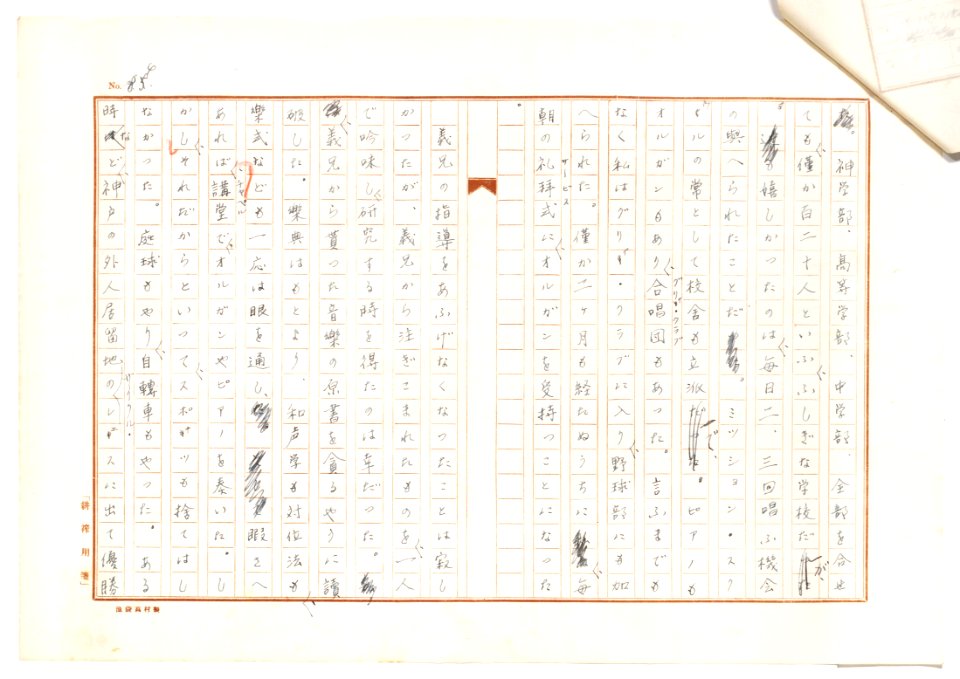 No.
神学部、高等学部、中学部、全部を合せ
ても僅か百二十人といふふしぎな学校だが、
嬉しかつたのは毎日二、三回唱ふ機会
の与へられたことだ。ミッション・スク
ールの常として校舎も立派で。ピアノも
オルガンもあり合唱団もあつた。言ふまでも
グリー・クラブ
なく私はグリー・クラブに入り野球部にも加
へられた。僅か二ヶ月も経たぬうちに毎
サービス
朝の礼拝式にオルガンを受持つことになつた
。
義兄の指導をあふげなくなつたことは寂し
かつたが、義兄から注ぎこまれたものを一人
で吟味し研究する時を得たのは幸だつた。
義兄から貰つた音楽の原書を貪るやうに読
破した。楽典はもとより、和声学も対位法も
楽式なども一応は眼を通し、暇さへ
あれば講堂でオルガンやピアノを奏いた。し
チャペル
かしそれだからといつてスポーツも捨てはし
なかつた。庭球もやり自転車もやつた。ある
時など神戸の外人居留地のレースに出て優勝
「耕筰用箋」